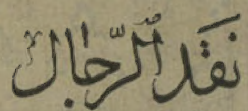 نَقْد ٱلرِّجَال